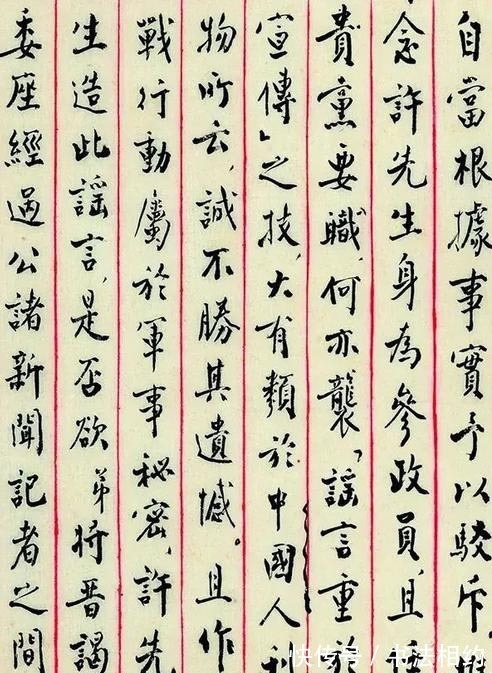 自當根據事實予以駁斥
念許先生身為參政員,且
貴黨要職,何亦襲「謠言重於
宣傳」之技,大有類於中國人
物所云,誠不勝其遺憾。且作
戰行動屬於軍事秘密,許先
生造此謠言,是否欲弟將晉謁
委座經過公諸新聞記者之間
快传号 / 书法相约